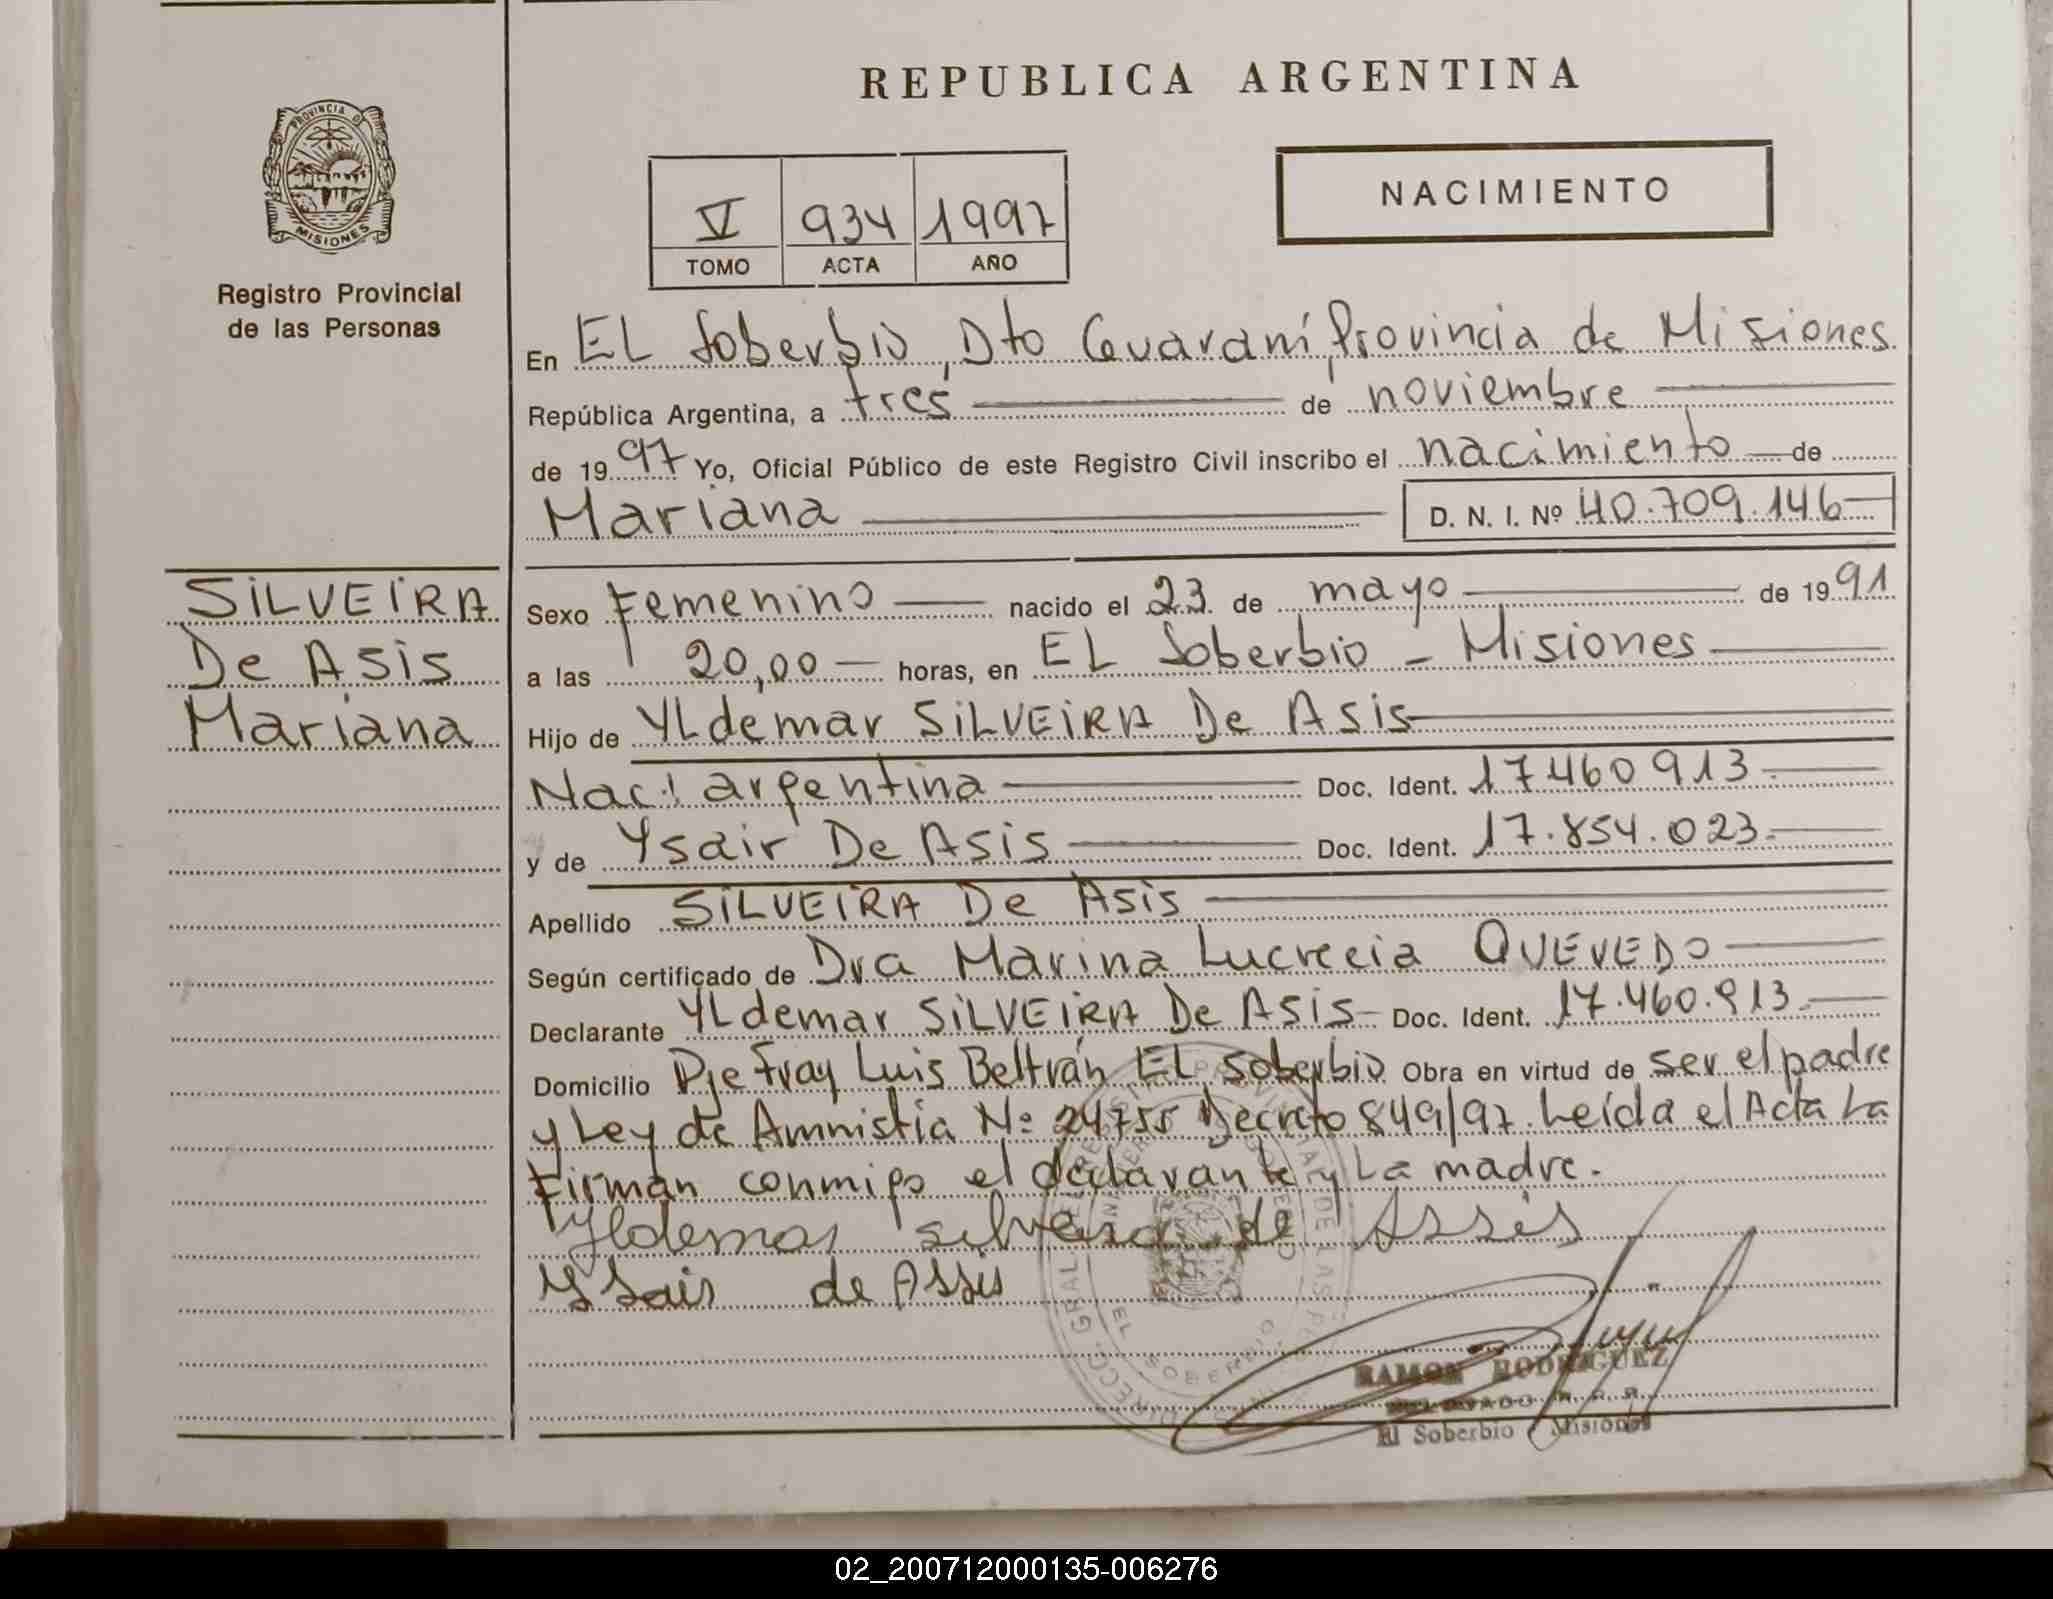 REPUBLICA ARGENTINA
PROVINCIA DE
MISIONES
Registro Provincial
de las Personas
NACIMIENTO
V 934 1997
TOMO ACTA AÑO
En EL Soberbio, Dto Guaraní, Provincia de Misiones
República Argentina, a tres de noviembre
de 1997 Yo, Oficial Público de este Registro Civil inscribo el nacimiento de
Mariana D. N. I. Nº 40.709.146
SiLVEiRA
De Asis
Mariana
Sexo Femenino nacido el 23 de mayo de 1991
a las 20,00 horas, en EL Soberbio - Misiones
Hijo de YLdemar SiLVEiRA De Asis
Nac: argentina Doc. Ident. 17.460.913
y de Ysair De Asis Doc. Ident. 17.854.023
Apellido SiLVEiRA De Asis
Según certificado de Dra Marina Lucrecia QUEVEDO
Declarante YLdemar SiLVEiRA De Asis Doc. Ident. 17.460.913
Domicilio Pje Fray Luis Beltrán EL Soberbio Obra en virtud de ser el padre
y Ley de Amnistia Nº 24755 Decreto 849/97. Leída el Acta La
Firman conmigo el declarante y La madre.
Yldemar silveira de Assis
Ysair de Assis
RAMON RODRIGUEZ
El Soberbio Misiones
02_200712000135-006276